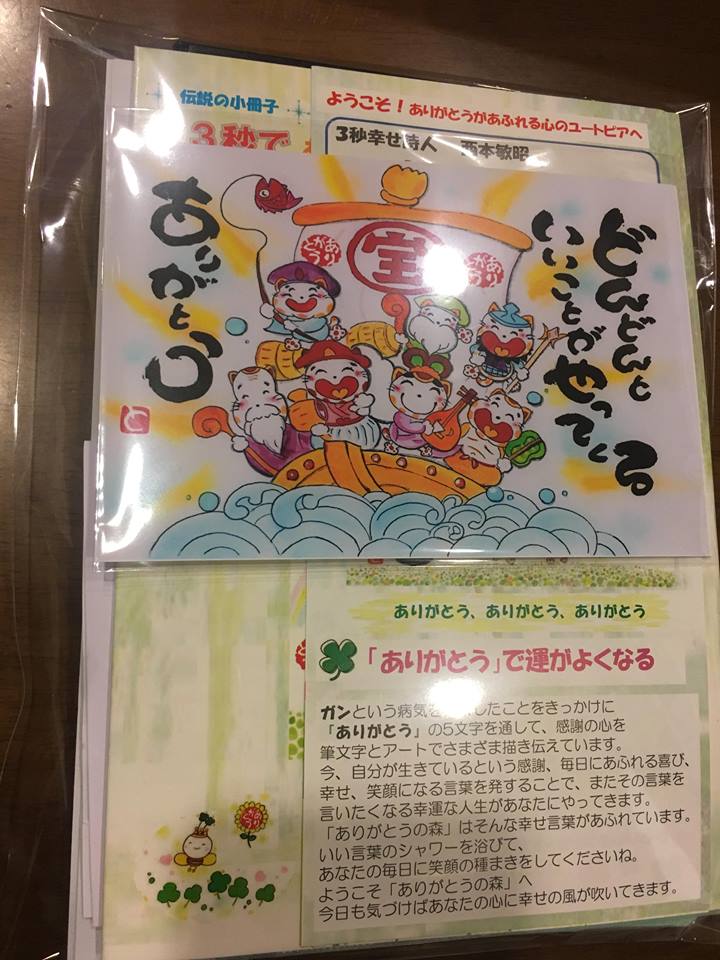 伝説の小冊子
3秒で
ようこそ！ありがとうがあふれる心のユートピアへ
3秒幸せ詩人 西本敏昭
どんどんと
いいことが
やってくる
宝
ありがとう
ありがとう
ありがとう
ありがとう、ありがとう、ありがとう
「ありがとう」で運がよくなる
ガンという病気を したことをきっかけに
「ありがとう」の5文字を通して、感謝の心を
筆文字とアートでさまざま描き伝えています。
今、自分が生きているという感謝、毎日にあふれる喜び、
幸せ、笑顔になる言葉を発することで、またその言葉を
言いたくなる幸運な人生があなたにやってきます。
「ありがとうの森」はそんな幸せ言葉があふれています。
いい言葉のシャワーを浴びて、
あなたの毎日に笑顔の種まきをしてくださいね。
ようこそ「ありがとうの森」へ
今日も気づけばあなたの心に幸せの風が吹いてきます。